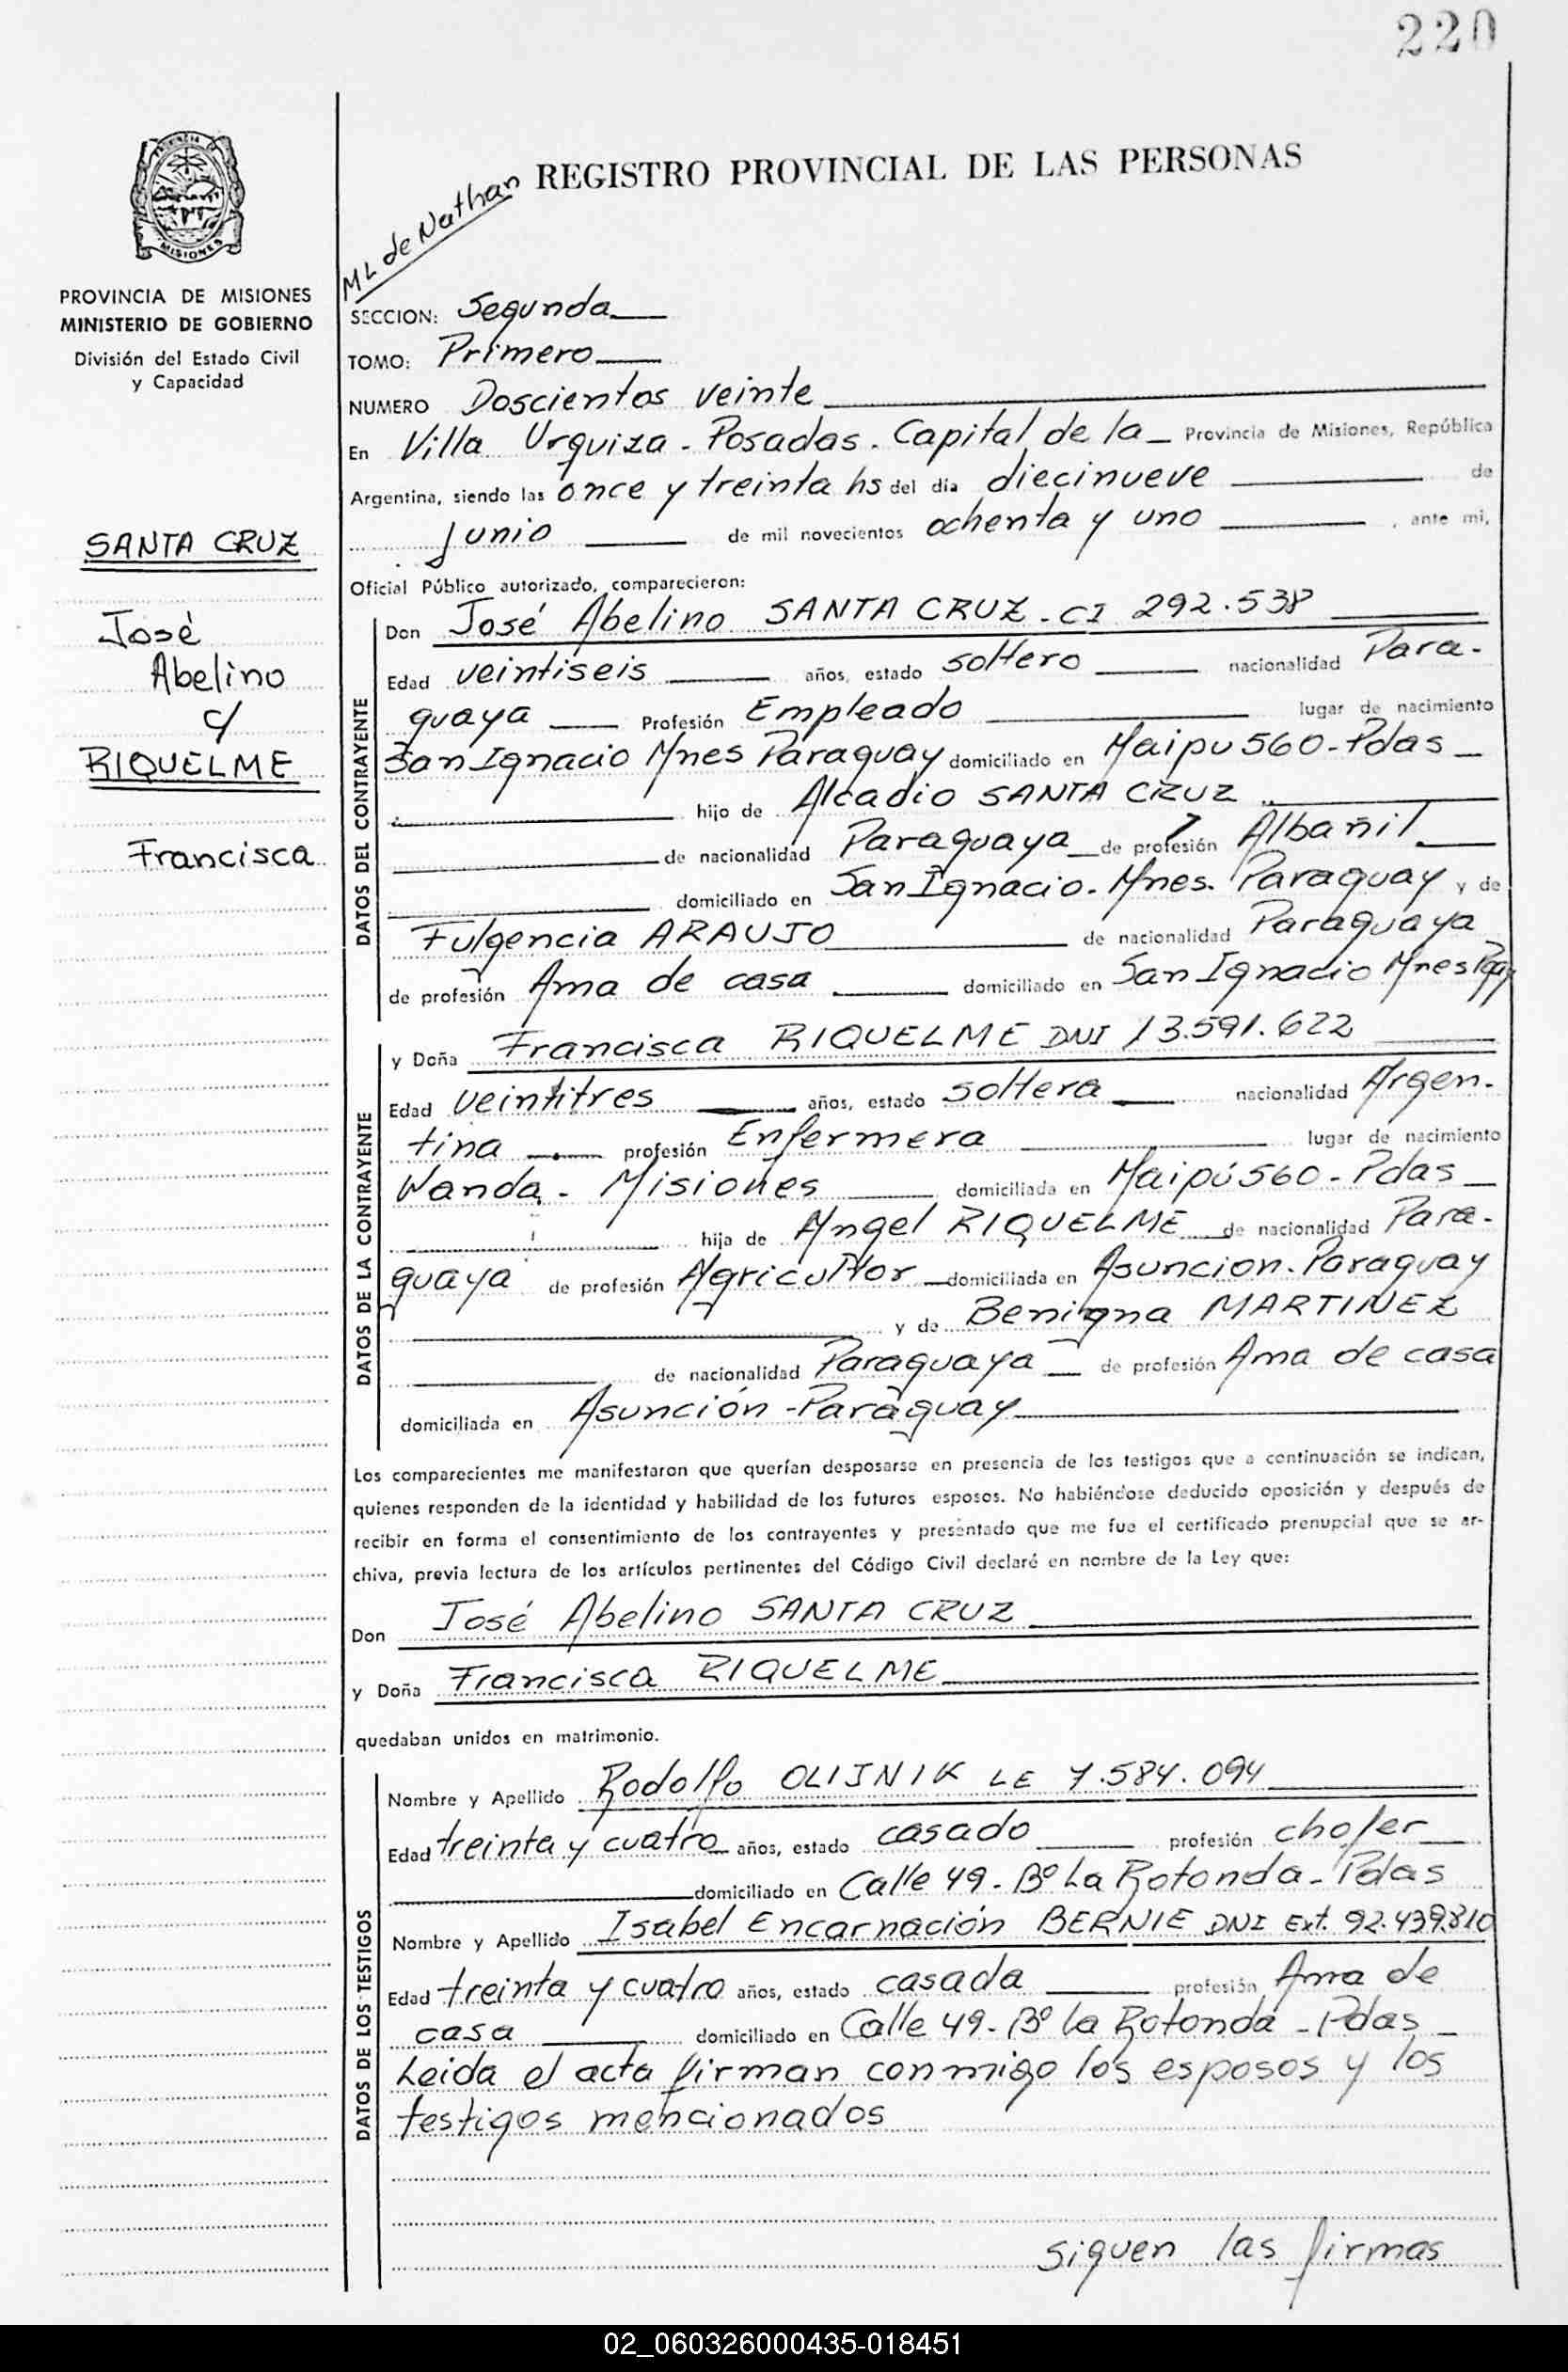 220
PROVINCIA DE
MISIONES
PROVINCIA DE MISIONES
MINISTERIO DE GOBIERNO
División del Estado Civil
y Capacidad
SANTA CRUZ
José
Abelino
c/
RIQUELME
Francisca
REGISTRO PROVINCIAL DE LAS PERSONAS
ML de Nathan
SECCION: Segunda
TOMO: Primero
NUMERO Doscientos veinte
En Villa Urquiza - Posadas. Capital de la Provincia de Misiones, República
Argentina, siendo las once y treinta hs del día diecinueve de
Junio de mil novecientos ochenta y uno, ante mi,
Oficial Público autorizado, comparecieron:
DATOS DEL CONTRAYENTE
Don José Abelino SANTA CRUZ - CI 292.538
Edad veintiseis años, estado soltero nacionalidad Para-
guaya Profesión Empleado lugar de nacimiento
San Ignacio Mnes Paraguay domiciliado en Maipu 560 - Pdas
hijo de Alcadio SANTA CRUZ
de nacionalidad Paraguaya de profesión Albañil
domiciliado en San Ignacio. Mnes. Paraguay y de
Fulgencia ARAUJO de nacionalidad Paraguaya
de profesión Ama de casa domiciliado en San Ignacio Mnes Pguy
DATOS DE LA CONTRAYENTE
y Doña Francisca RIQUELME DNI 13.591.622
Edad veintitres años, estado soltera nacionalidad Argen-
tina profesión Enfermera lugar de nacimiento
Wanda - Misiones domiciliada en Maipú 560 - Pdas
hija de Angel RIQUELME de nacionalidad Para-
guaya de profesión Agricultor domiciliada en Asuncion. Paraguay
y de Benigna MARTINEZ
de nacionalidad Paraguaya de profesión Ama de casa
domiciliada en Asunción - Paraguay
Los comparecientes me manifestaron que querían desposarse en presencia de los testigos que a continuación se indican,
quienes responden de la identidad y habilidad de los futuros esposos. No habiéndose deducido oposición y después de
recibir en forma el consentimiento de los contrayentes y presentado que me fue el certificado prenupcial que se ar-
chiva, previa lectura de los artículos pertinentes del Código Civil declaré en nombre de la Ley que:
Don José Abelino SANTA CRUZ
y Doña Francisca RIQUELME
quedaban unidos en matrimonio.
DATOS DE LOS TESTIGOS
Nombre y Apellido Rodolfo OLIJNIK LE 7.584.094
Edad treinta y cuatro años, estado casado profesión chofer
domiciliado en Calle 49 - Bº La Rotonda - Pdas
Nombre y Apellido Isabel Encarnación BERNIE DNI Ext. 92.439.810
Edad treinta y cuatro años, estado casada profesión Ama de
casa domiciliado en Calle 49 - Bº La Rotonda - Pdas
Leida el acta firman conmigo los esposos y los
testigos mencionados
siguen las firmas
02_060326000435-018451